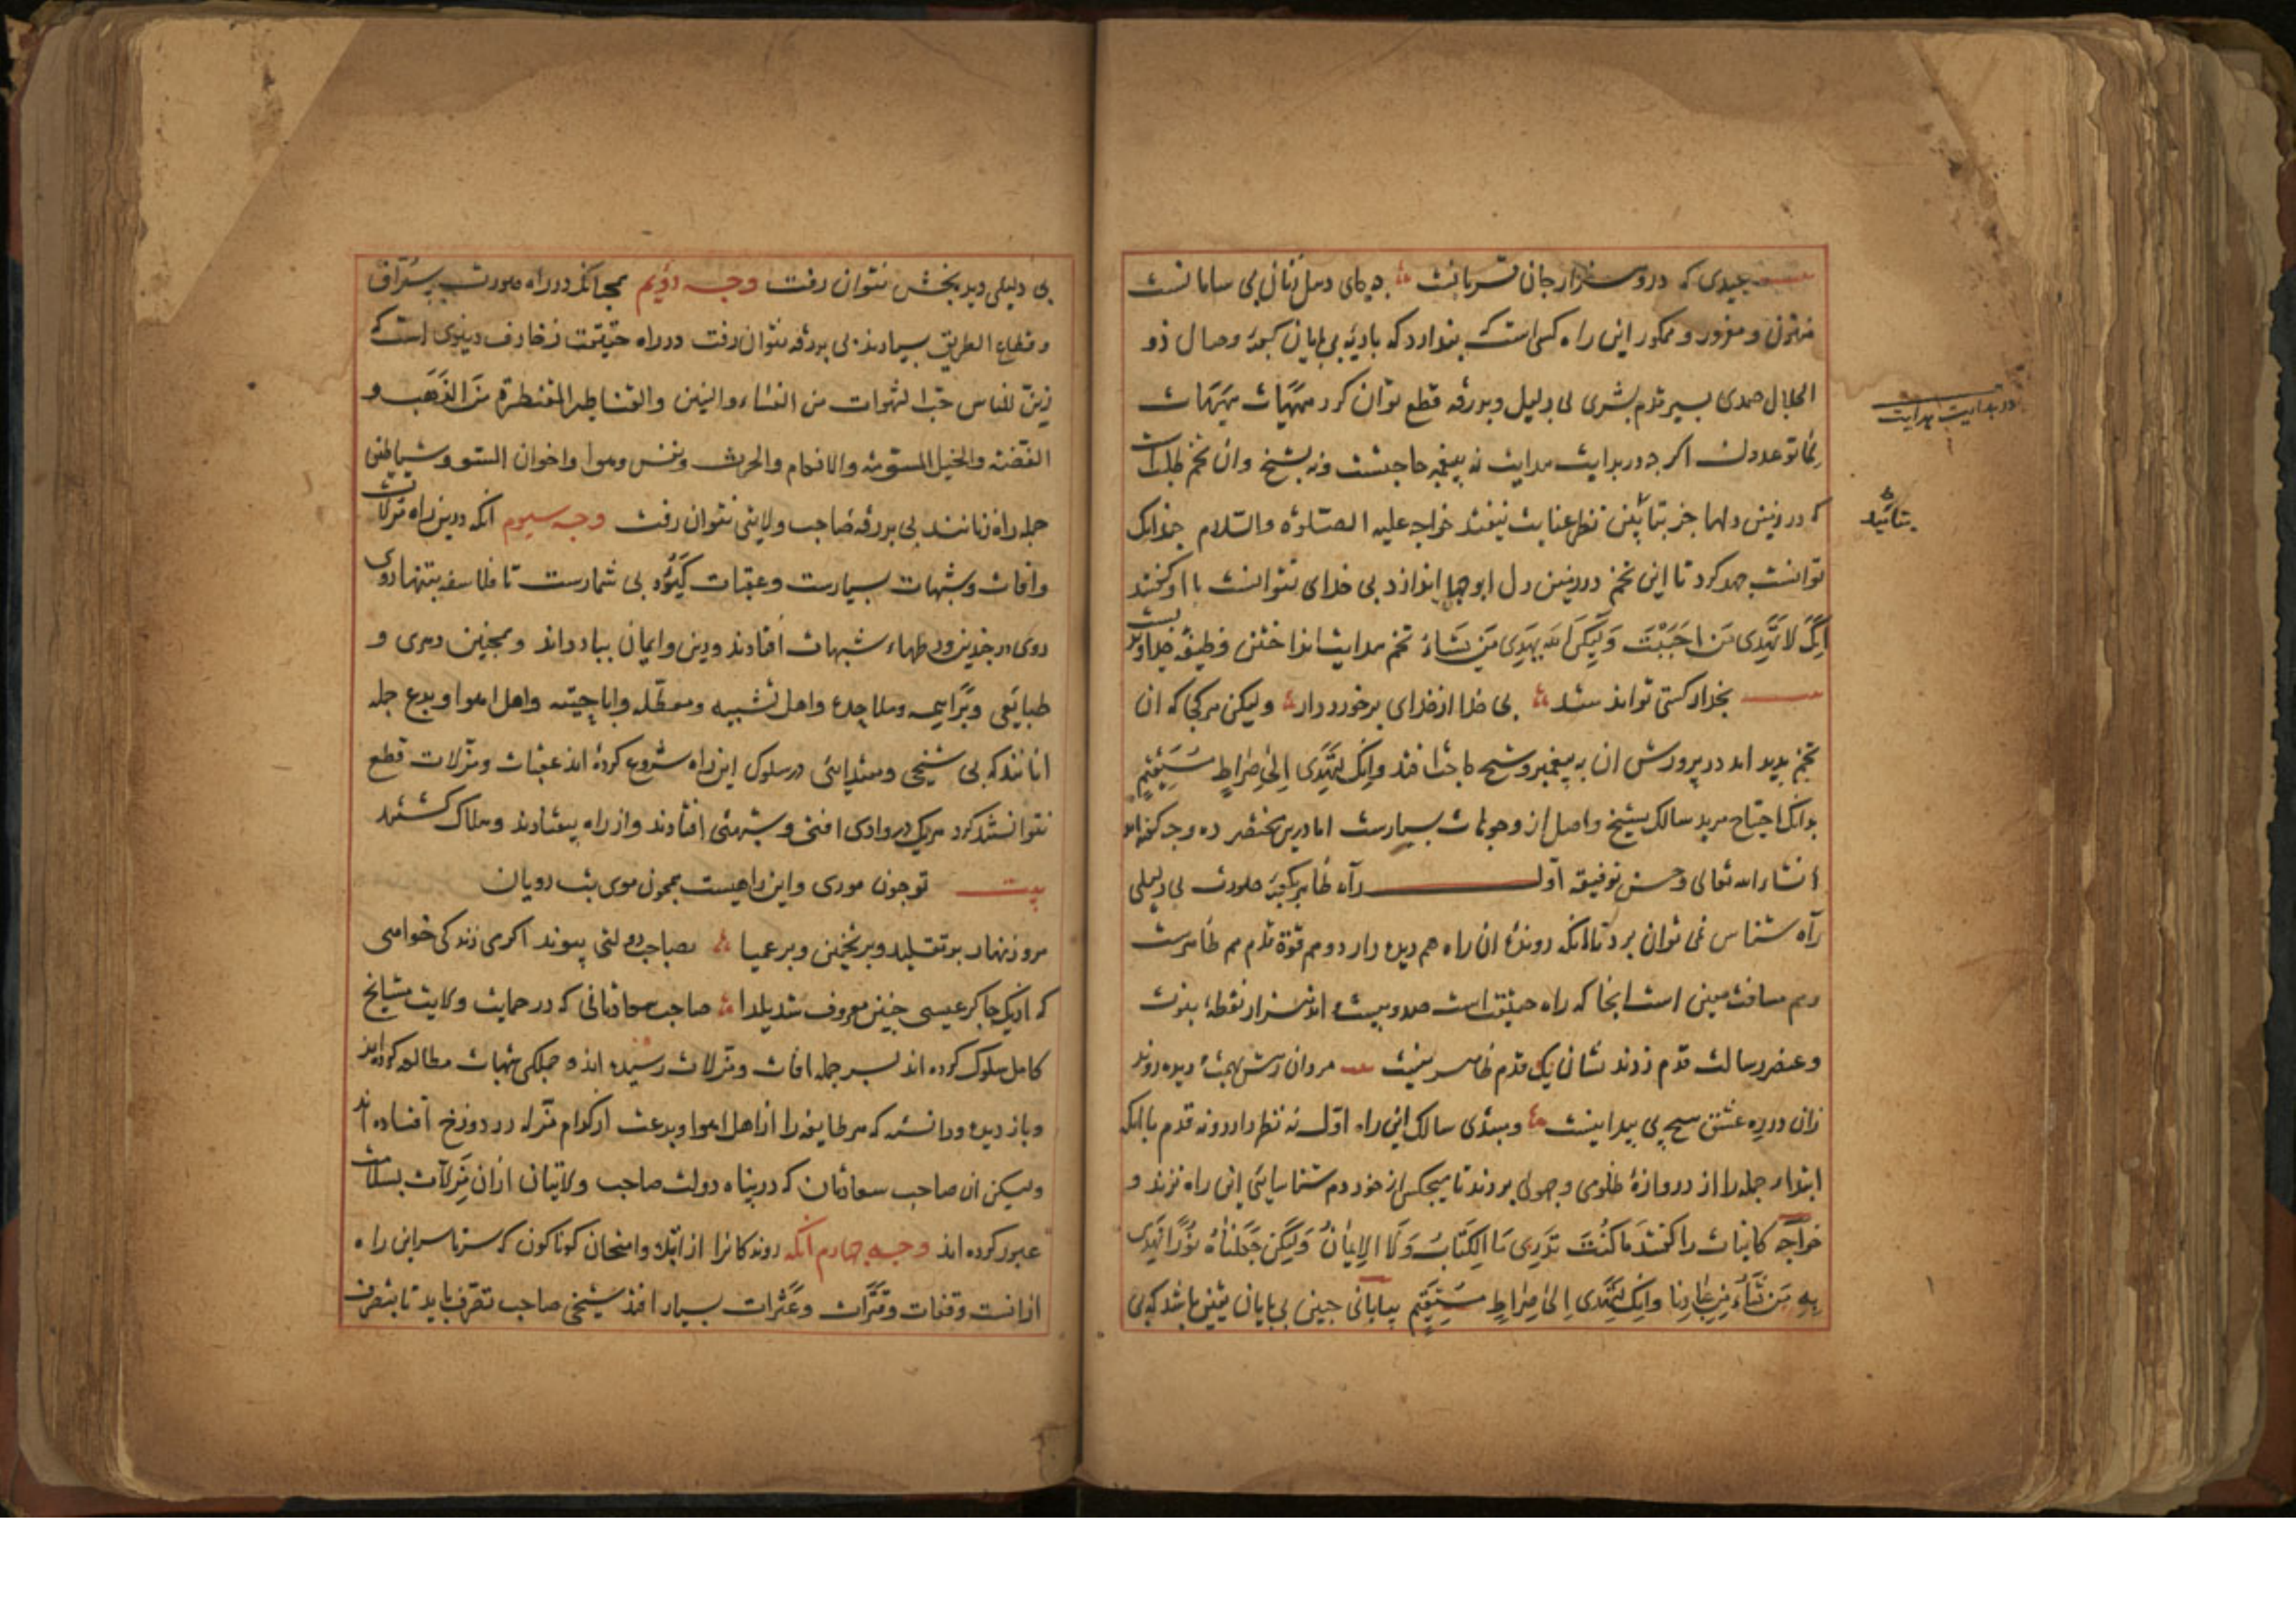 صیدی که درو هزار جان قربانست جه جای دمدل زنان بی سامانست
مفتون و مغرور و ممکور این راه کسی است که بندارد که بادیه بی پایان کعبه وصال ذو
الجلال صمدی بسیر قدم بشری بی دلیل و بدرقه قطع توان کرد هیهات هیهات
لما توعدون اکر جه در بدایت هدایت نه بپیغمبر حاجتست ونه بشیخ وان تخم طلب است
که در زمین دلها جز بتاثیر نظر عنایت نیفتد خواجه علیه الصلوة والسلام جندانک
توانست جهد کرد تا این تخم در زمین دل ابوجهل اندازد بی خدای نتوانست با او کفتند
انک لا تهدی من احببت ولیکن الله یهدی من یشاء تخم هدایت انداختن وظیفه خداوندیست
بخدا ار کسی تواند بند بی خدا از خدای برخوردار ولیکن هر کجا که ان
تخم بدید امد در پرورش ان به پیغمبر وشیخ حاجت افتد وانک لتهدی الی صراط مستقیم
بدانک احتیاج مرید سالک بشیخ واصل از وجوهات بسیارست اما درین مختصر ده وجه کفته اید
انشاءالله تعالی وحسن توفیقه اول راه ظاهر بکعبه صورت بی دلیلی
راه شناس نمی توان برد با انکه رونده ان راه هم دیده دارد وهم قوة قدم هم ظاهرست
وهم مسافت معین است انجا که راه حقیقت است صد وبیست واند هزار نقطه نبوت
وعنصر رسالت قدم زدند نشان یک قدم ظاهر نیست مردان رهش بهمت ودیده روند
زان در ره عشق هیچ پی پیدا نیست ومبتدی سالک این راه اول نه نظر دارد ونه قدم با انکه
ابتدا جمله را از دروازه ظلومی وجهولی بردند تا هیجکس از خود دم شناسایی این راه نزند و
خواجه کاینات را کفتند ما کنت تدری ما الکتاب ولا الایمان ولکن جعلناه نورا نهدی
به من نشاء من عبادنا وانک لتهدی الی صراط مستقیم بیابانی جنین بی پایان یقین باشد که بی
در بدایت هدایت
بتاثیر
بی دلیلی دیده بخش نتوان رفت وجه دویم همجنانکه در راه صورت سراق
وقطاع الطریق بسیارند بی بدرقه نتوان رفت در راه حقیقت زخارف دنیوی است که
زین للناس حب الشهوات من النساء والبنین والقناطیر المقنطرة من الذهب و
الفضه والخیل المسومه والانعام والحرث ونفس وهوا واخوان السوو وشیاطین
جمله راه زنانند بی بدرقه صاحب ولایتی نتوان رفت وجه سیوم انکه درین راه مزلات
وافات وشبهات بسیارست وعقبات کئوده بی شمارست تا فلاسفه بتنهاروی
روی در جندین ورطهاء شبهات افتادند ودین وایمان بباد دادند وهمجنین دهری و
طبایعی وبراهمه وملاحده واهل تشبیه ومعطله واباحیته واهل اهوا وبدع جمله
انانند که بی شیخی ومقتدایی در سلوک این راه شروع کرده اند عقبات ومزلات قطع
نتوانستند کرد هر یک در وادی افتی وشبهتی افتادند واز راه بیفتادند وهلاک کشتند
بیت تو جون موری واین راهیست همجون موی بت رویان
مرو زنهار بر تقلید وبر تخمین وبر عمیا بصاحب دولتی پیوند اکر می زندکی خواهی
که از یک جاکر عیسی جنین معروف شد یلدا صاحب سعادتانی که در حمایت ولایت مشایخ
کامل سلوک کرده اند بسر جمله افات ومزلات رسیده اند وجملکی شبهات مطالعه کرده اند
وباز دیده ودانسته که هر طایفه را از اهل اهوا وبدعت از کدام مزله در دوزخ افتاده اند
ولیکن ان صاحب سعادتان که در پناه دولت صاحب ولایتان ازان مزلات بسلامت
عبور کرده اند وجه چهارم انکه روندکانرا از ابتلا وامتحان کوناکون که سرتاسر این راه
ازانست وقفات وفترات وعثرات بسیار افتد شیخی صاحب تصرف باید تا بتصرف